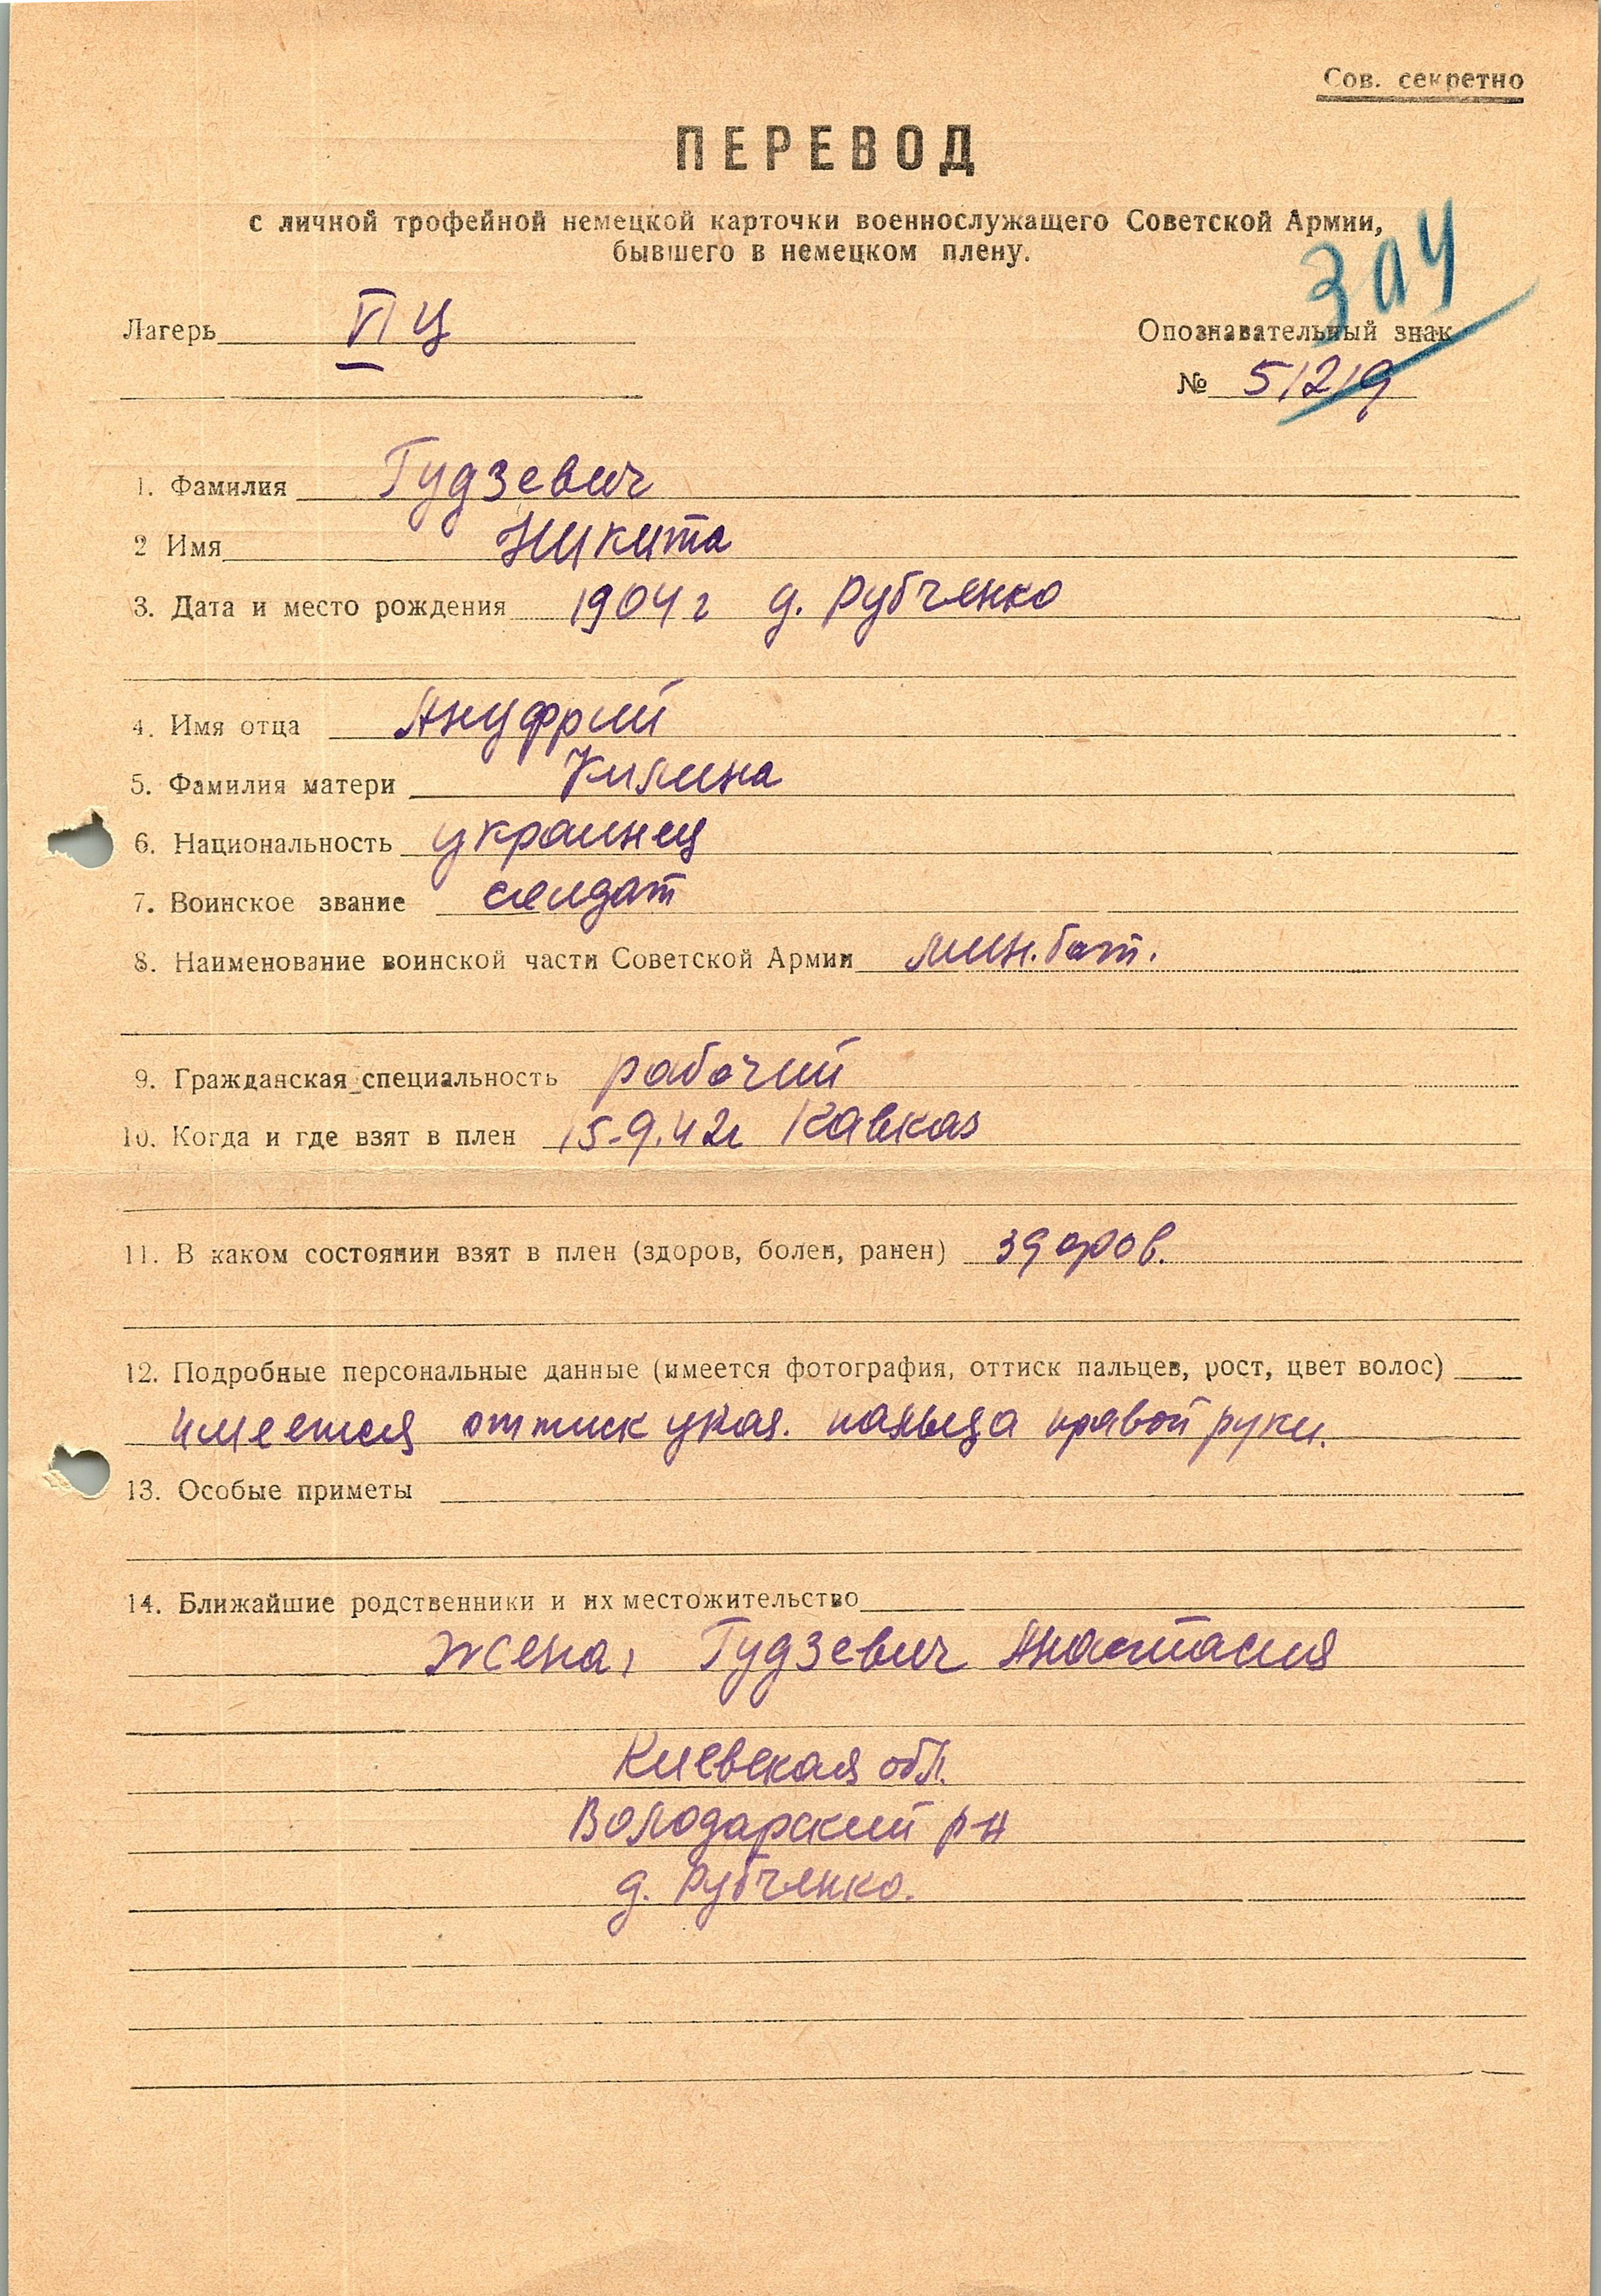 Сов. секретно
ПЕРЕВОД
с личной трофейной немецкой карточки военнослужащего Советской Армии,
бывшего в немецком плену.
Лагерь VI Ц
Опознавательный знак
№ 51219
1. Фамилия Гудзевич
2 Имя Никита
3. Дата и место рождения 1904 г д. Рубченко
4. Имя отца Ануфрий
5. Фамилия матери Килина
6. Национальность украинец
7. Воинское звание солдат
8. Наименование воинской части Советской Армии мин. бат.
9. Гражданская специальность рабочий
10. Когда и где взят в плен 15-9.42г Кавказ
11. В каком состоянии взят в плен (здоров, болен, ранен) здоров.
12. Подробные персональные данные (имеется фотография, оттиск пальцев, рост, цвет волос)
имеется оттиск указ. пальца правой руки.
13. Особые приметы
14. Ближайшие родственники и их местожительство
жена, Гудзевич Анастасия
Киевская обл.
Володарский р-н
д. Рубченко.